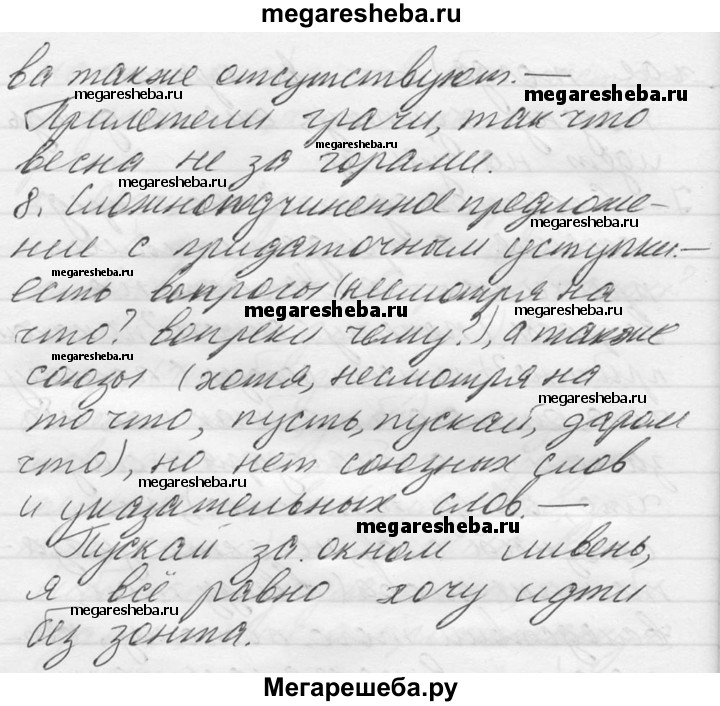 megaresheba.ru
ва также отсутствуют. —
megaresheba.ru
megaresheba.ru
Прилетели грачи, так что
весна не за горами.
megaresheba.ru
8. Сложноподчиненное предложе-
megaresheba.ru
ние с придаточным уступки. —
megaresheba.ru
есть вопросы (несмотря на
megaresheba.ru
что? вопреки чему?), а также
megaresheba.ru
союзы (хотя, несмотря на
megaresheba.ru
то что, пусть, пускай, даром
что), но нет союзных слов
и указательных слов. —
megaresheba.ru
Пускай за окном ливень,
я всё равно хочу идти
megaresheba.ru
megaresheba.ru
без зонта.
Мегарешеба.ру